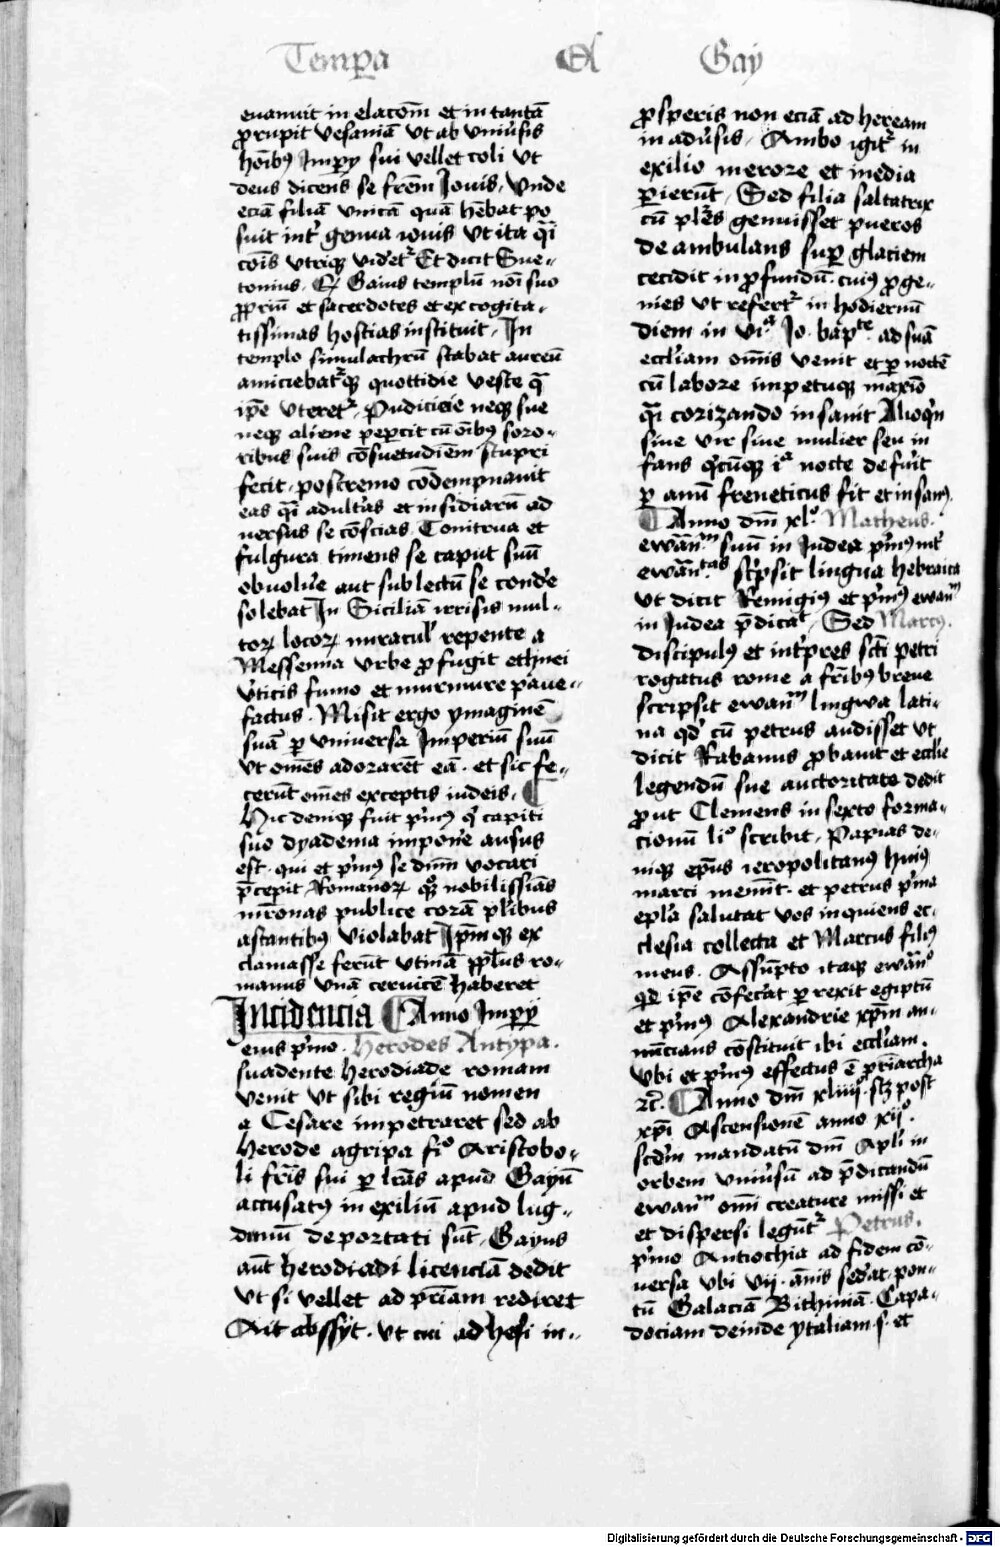 Temꝑa Et Gay
euanuit in elaco̅m et in tantā
ꝓrupit vesaniā vt ab vniu̓sis
hoībꝰ Impꝫy sui vellet coli vt
deus dicens se frēm Iouis, vnde
eciā filiā vnicā quā hēbat po
suit int̓ genua iouis vt ita qͣi
cōis vtriqꝫ vidꝫetᷣ Et dicit Sue-
tonius, Gaius templū noi̅ suo
ꝓpriū et sacerdotes et excogita-
tissimas hostias instituit, In
templo simulachrū stabat aureū
amiciebatᷣqꝫ quottidie veste qͣ
ip̄e vteretᷣ, Pudicicie neqꝫ sue
neqꝫ aliene peꝑcit cū oībꝰ soro-
ribus suis cōsuetudiēm stupri
fecit, postremo cōdempnauit
eas qͣi adultͣas et insidiarū ad
uersus se cōscias Tonitrua et
fulgura timens se caput suū
obuolu̓e aut sub lectū se conde̓
solebat In Siciliā irrisis mul-
toꝝ locoꝝ miracul̓ repente a
Messenna vrbe ꝓfugit ethnei
v̓ticis fumo et murmure paue-
factus. Misit ergo ymaginē
suā ꝑ vniuersa Imperiū suū
vt om̄es adorarēt eā. et sic fe-
cerūt om̄es exceptis iudeis,
Hic deniqꝫ fuit pͥmꝰ qͥ capiti
suo dyadema impone̓ ausus
est. qui et pͥmꝰ se dn̄m vocari
p̄cepit Romanoꝝ nobilissiās
mr̄onas publice corā pl̓ibus
astantibꝰ violabat Ip̄mqꝫ ex
clamasse ferūt vtinā ppl̓us ro-
manus vnā ceruicē haberet
Incidencia Anno Impꝫy
eius pͥmo. Herodes Antypa.
suadente herodiade romam
venit vt sibi regiū nomen
a Cesare impetraret sed ab
herode agripa fi° Aristobo-
li fr̄is sui ꝑ lr̄as apud Gayū
accusatꝰ in exiliū apud lug-
dunū deportati sūt, Gayus
aūt herodiadi licenciā dedit
vt si vellet ad pr̄iam rediret
Ait abssyt. vt cui adhesi in-
ꝓsperis non eciā adheream
in adu̓sis, Ambo igitᷣ in
exilio merore et inedia
ꝑierūt, Sed filia saltatrix
cū pl̓es genuisset pueros
deambulans suꝑ glaciem
cecidit in ꝓfundū. cuiꝰ ꝓge-
nies vt refertᷣ in hodiernū
diem in viᵃ Io. bapᵗᵉ. ad suā
eccl̓iam om̄is venit et ꝑ noctē
cū labore impetuqꝫ maxīo
qͣi corizando insanit Alioqͥn
siue vir siue mulier seu in
fans qͥcūqꝫ iᵃ nocte defuit
ꝑ annū freneticus fit et insanꝰ,
Anno dn̄i xl°. Matheus.
ewān.ᵐ suū in Iudea pͥmꝰ int̓
ewān.ᵗᵃˢ sc̓psit lingua hebraica
vt dicit Remigiꝰ et pͥmꝰ ewanᵐ
in Iudea p̄dicat, Sed Marcꝰ.
discipulꝰ et int̓pres sc̄i petri
rogatus rome a fr̄ibꝰ breue
scripsit ewanᵐ lingwa lati-
na qd̓ cū petrus audisset vt
dicit Rabanus ꝓbauit et eccl̓ie
legendū sue auctoritate dedit
ꝓut Clemens in sexto forma-
cionū li° scribit, Papias de-
niqꝫ ep̄us ieropolitanꝰ huiꝰ
marci memīt. et petrus pͥma
epl̓a salutat vos inquiens ec-
clesia collecta et Marcus filiꝰ
meus. Assūpto itaqꝫ ewān°
qd̓ ip̄e cōfec̓at ꝑrexit egiptū
et pͥmꝰ Alexandrie xp̄m an-
nūcians cōstituit ibi eccl̓iam.
vbi et pͥmꝰ effectus ē pr̄iarcha
⁊c̄. Anno dn̄i xliiij°. sꝫ post
xp̄i Ascensionē anno xij°.
scd̓m mandatū dn̄i Apl̓i in
orbem vniu̓sū ad p̄dicandū
ewanᵐ om̄i creature missi et
et dispersi legūtᷣ Petrus.
pͥmo Antiochia ad fidem cō-
uersa vbi vij. ānis sed̓at, pon-
tū Galaciā Bithiniā. Capa-
dociam deinde ytaliam. s. et
Digitalisierung gefördert durch die Deutsche Forschungsgemeinschaft - DFG